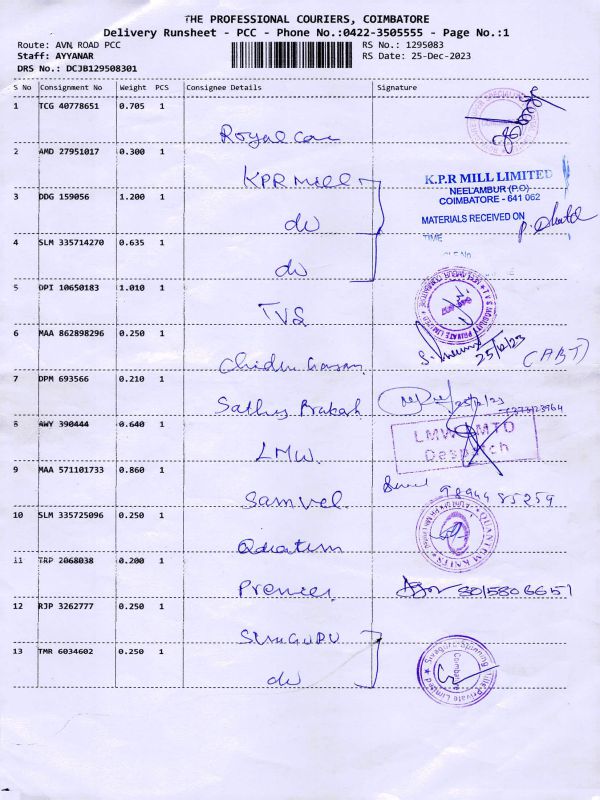 THE PROFESSIONAL COURIERS, COIMBATORE
Delivery Runsheet - PCC - Phone No.:0422-3505555 - Page No.:1
Route: AVN ROAD PCC
Staff: AYYANAR
DRS No.: DCJB129508301
RS No.: 1295083
RS Date: 25-Dec-2023
S No Consignment No Weight PCS Consignee Details Signature
1 TCG 40778651 0.705 1
Royal Car
2 AMD 27951017 0.300 1
KPR Mill
K.P.R MILL LIMITED
NEELAMBUR (P.O)
3 DDG 159056 1.200 1
COIMBATORE - 641 062
MATERIALS RECEIVED ON
TIME
do
4 SLM 335714270 0.635 1
do
5 DPI 10650183 1.010 1
TVS
6 MAA 862898296 0.250 1
25/12/23
(ABT)
7 DPM 693566 0.210 1
Sathya Prakash
25/12/23
8 AWY 390444 0.640 1
LMW
LMW
Despatch
9 MAA 571101733 0.860 1
Samvel
9894485259
10 SLM 335725096 0.250 1
QUANTUM KNITS
11 TRP 2068038 0.200 1
Premier
8015806651
12 RJP 3262777 0.250 1
SIVAGURU
13 TMR 6034602 0.250 1
do
Coimbatore